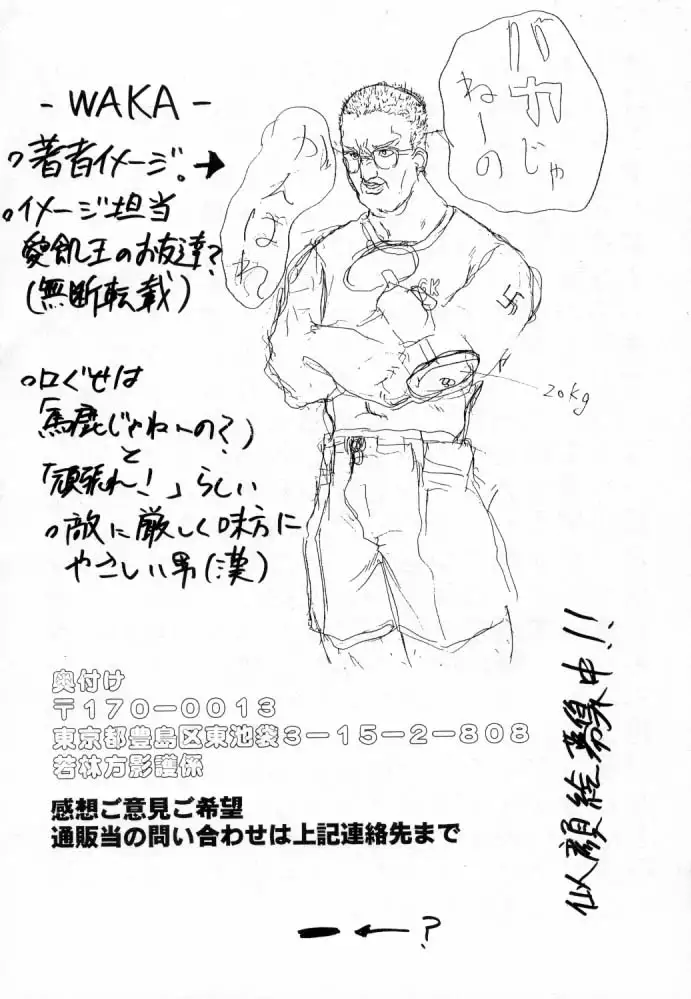 バカじゃ
ねーの
がんばれ
- WAKA -
著者イメージ。→
イメージ担当
愛飢王のお友達?
(無断転載)
口ぐせは
「馬鹿じゃねーの?」
と
「頑張れ!」らしい
敵に厳しく味方に
やさしい男(漢)
GK
20kg
奥付け
〒170−0013
東京都豊島区東池袋3−15−2−808
若林方影護係
感想ご意見ご希望
通販当の問い合わせは上記連絡先まで
似顔絵募集中!!
ー←?